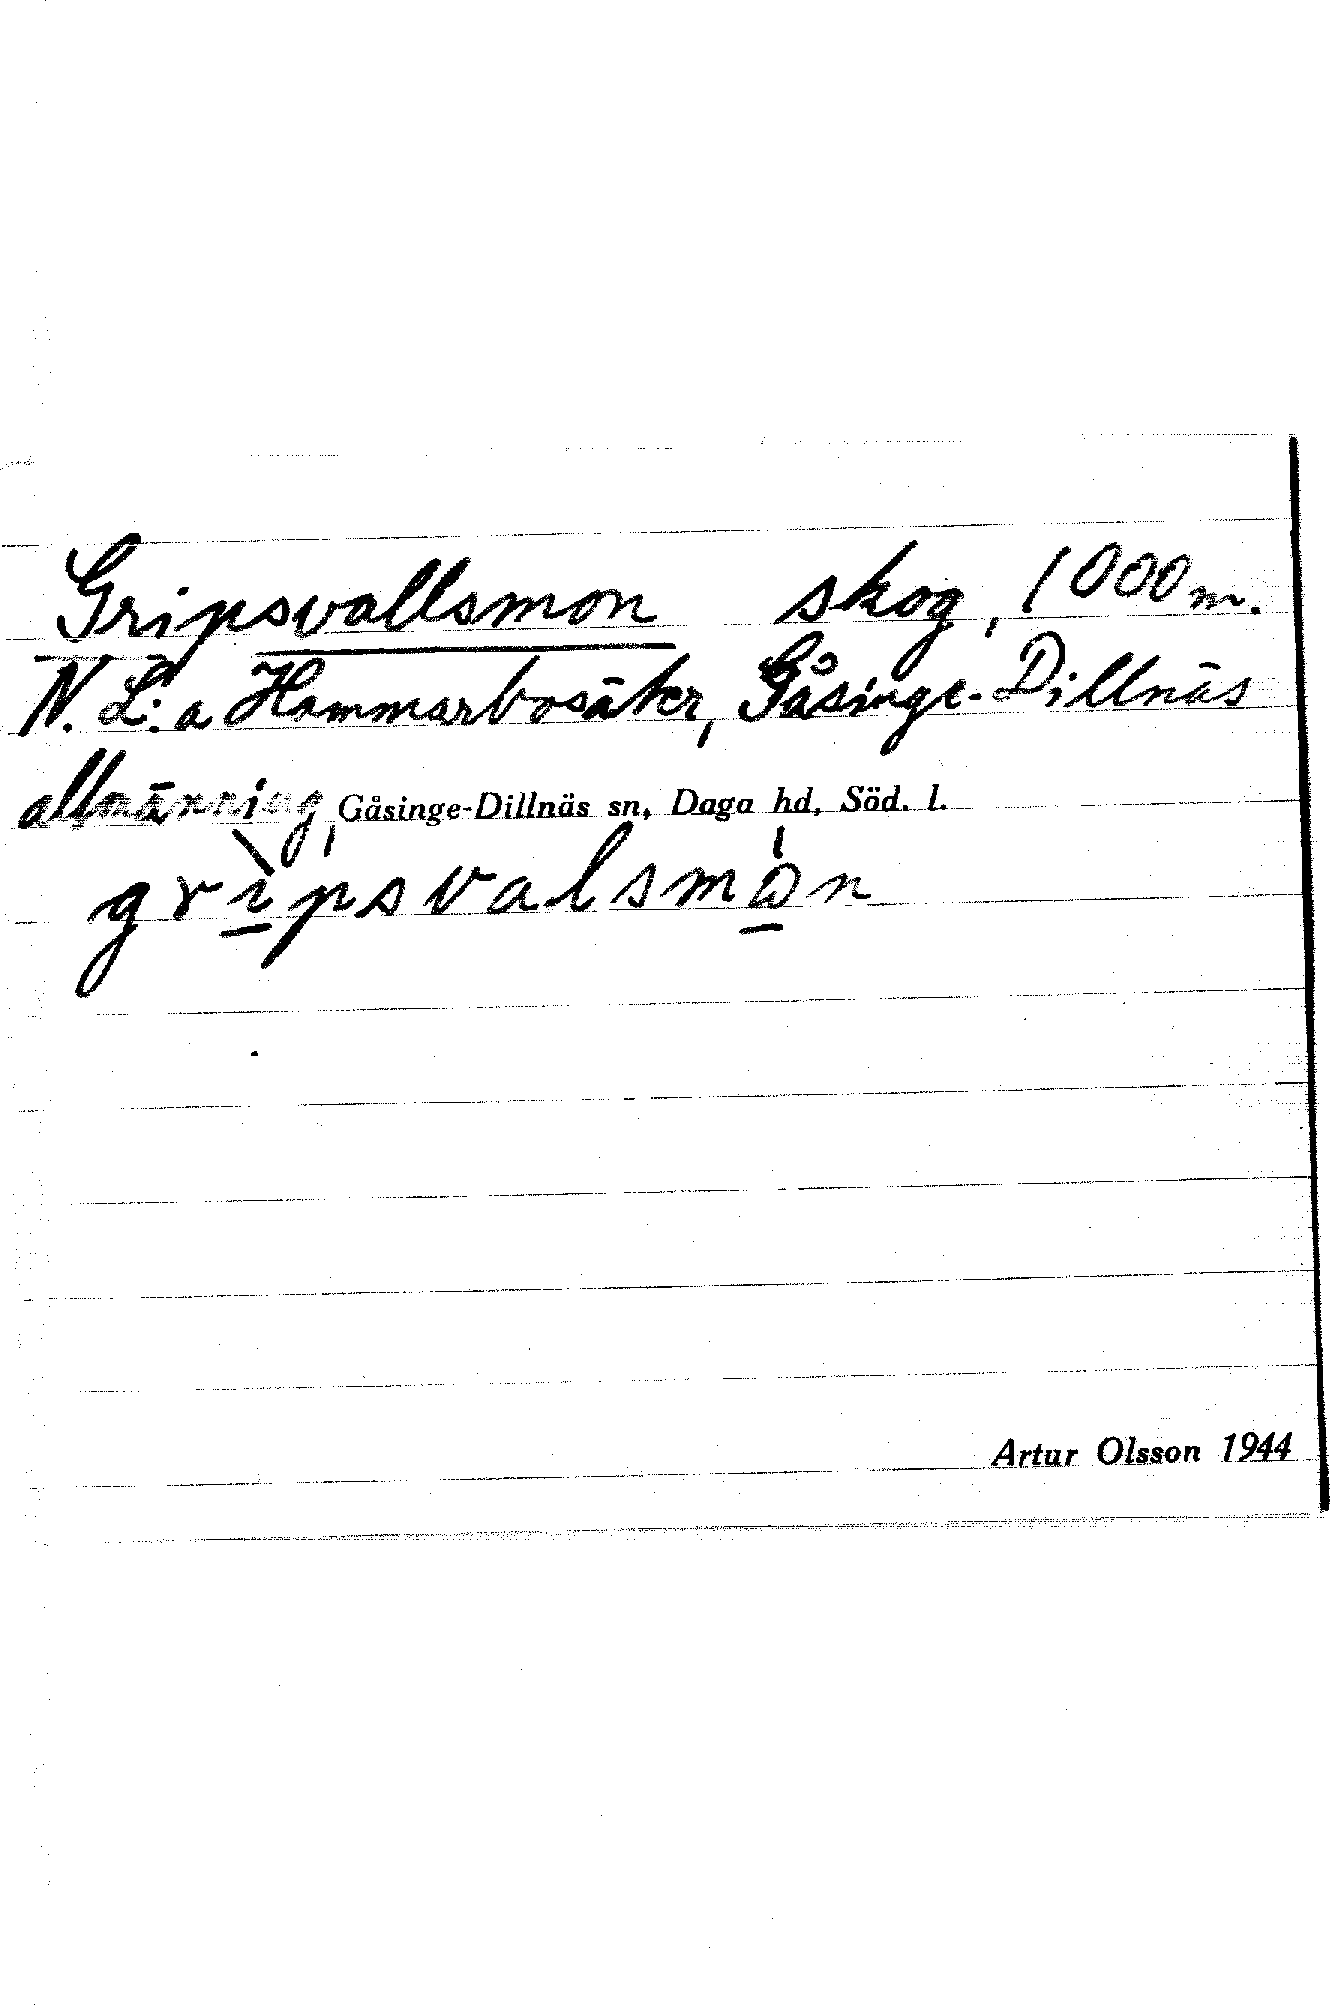 Gripsvallsmon skog, 1000 m.
N. L:a Hammarbosäter, Gåsinge-Dillnäs
allmänning, Gåsinge-Dillnäs sn, Daga hd, Söd. l.
grìpsvalsmɷ́n
Artur Olsson 1944